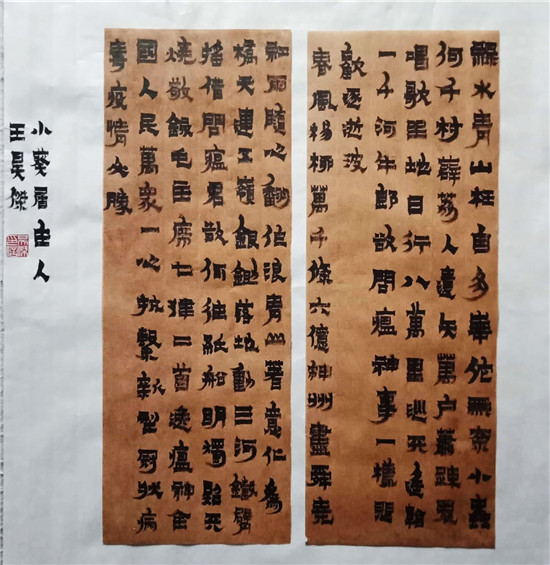 綠水青山枉自多華佗無奈小蟲
何千村薜荔人遺矢萬户蕭疎鬼
唱歌坐地日行八萬里巡天遥看
一千河牛郎欲問瘟神事一樣悲
歡逐逝波
春風楊柳萬千條六億神州盡舜堯
紅雨隨心翻作浪青山著意化為
橋天連五嶺銀鋤落地動三河鐵臂
搖借問瘟君欲何往紙船明燭照天
燒敬錄毛主席七律二首送瘟神全
國人民萬衆一心抗擊新型冠狀病
毒疫情必勝
小葵居主人
王昊傑